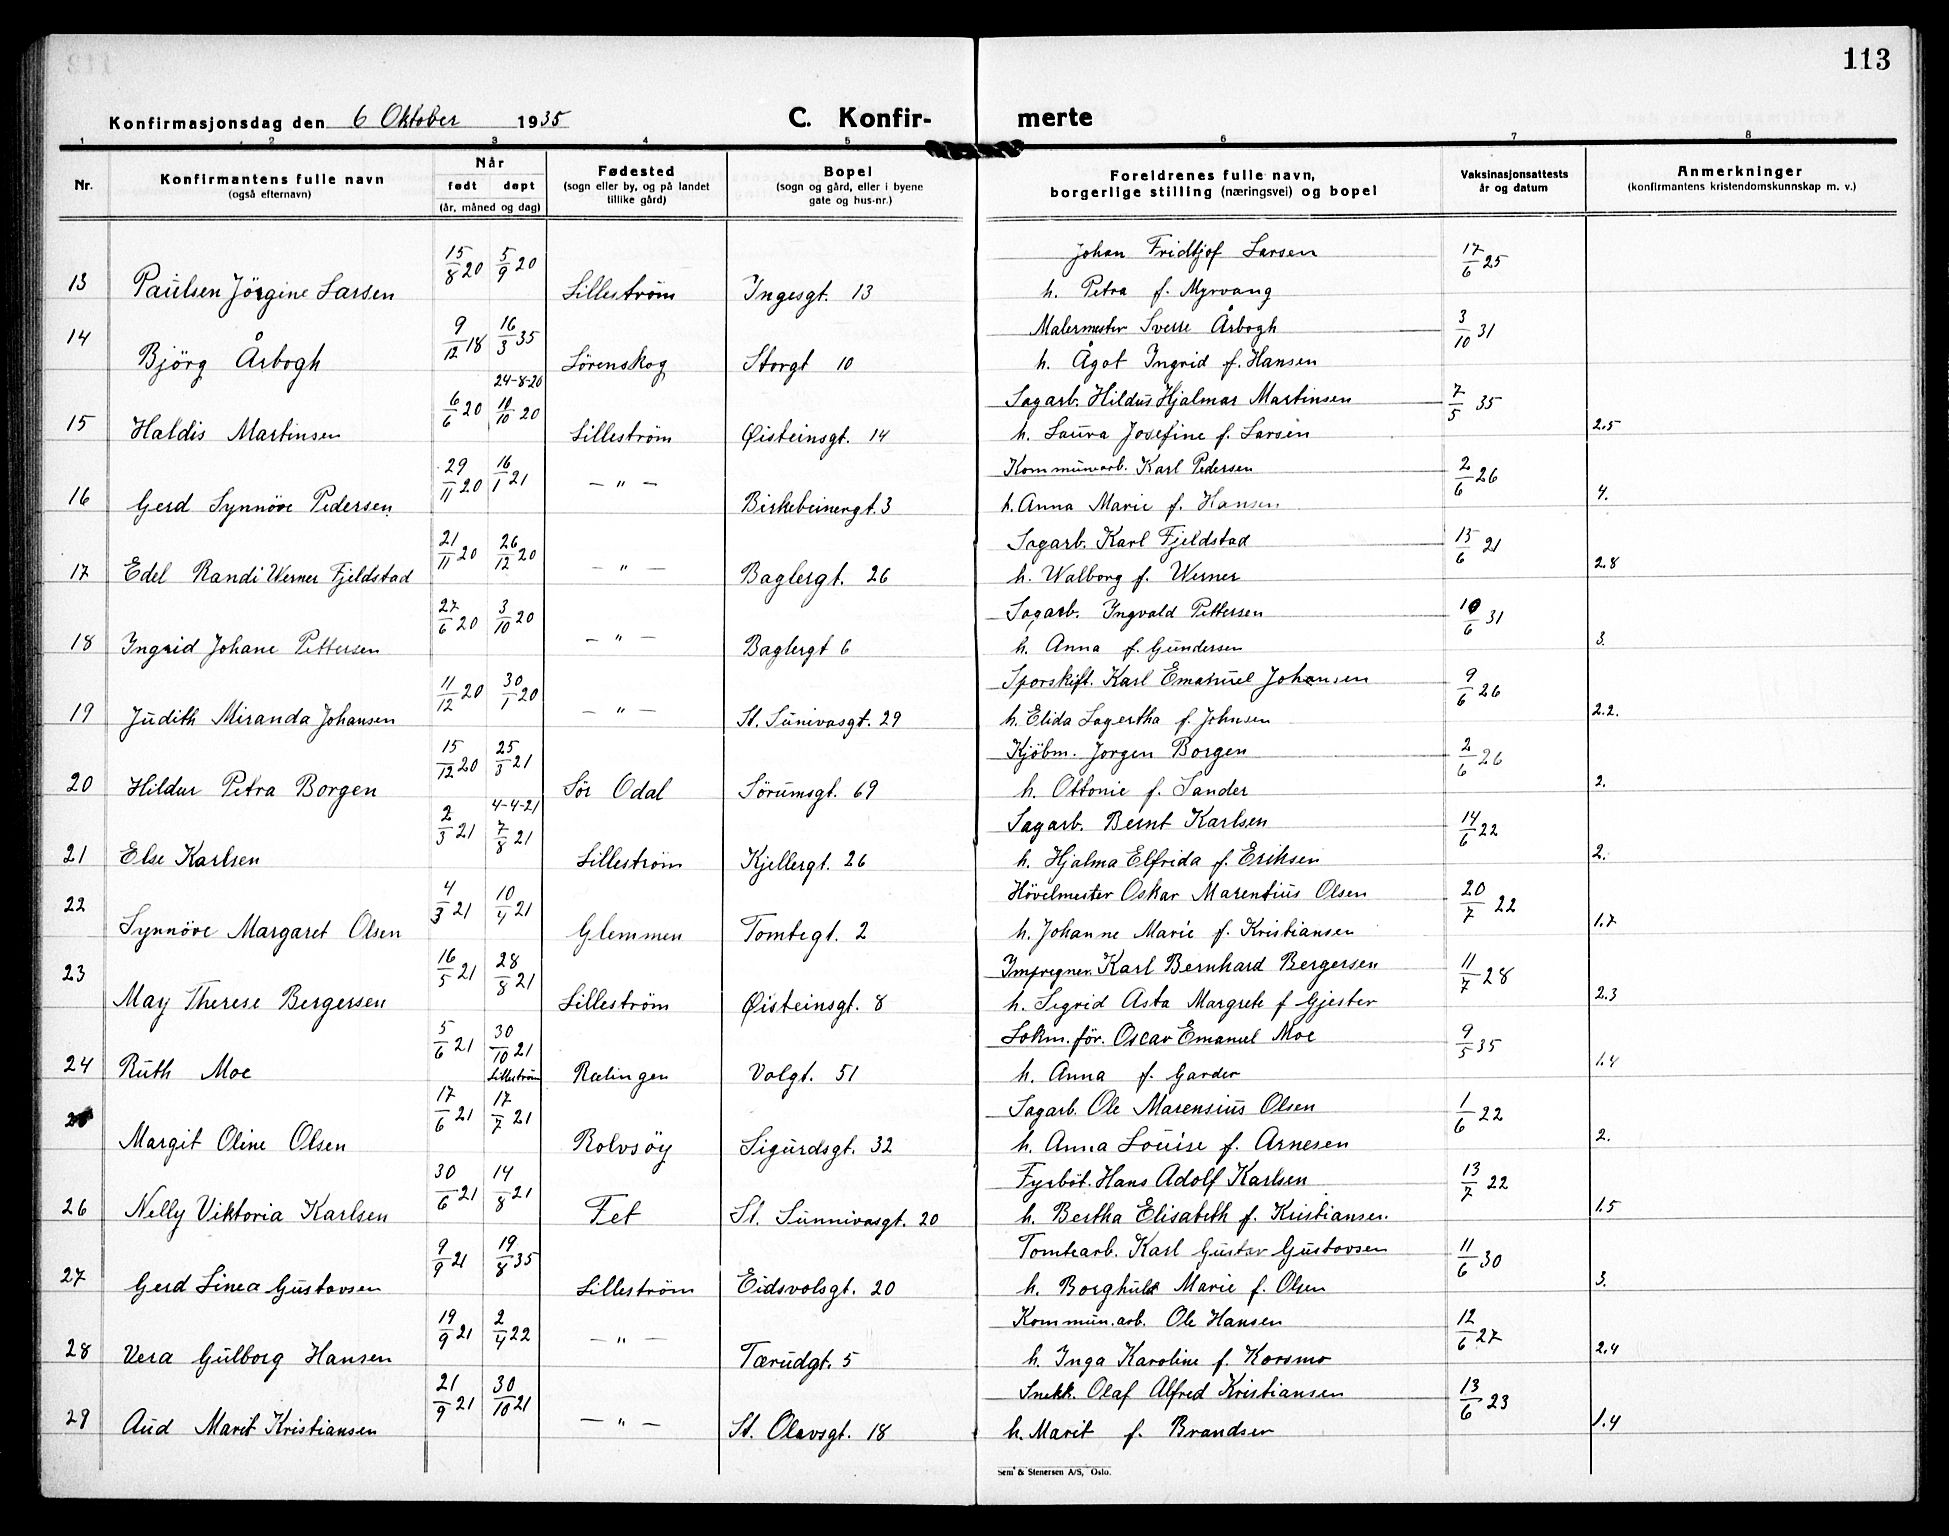 113
Konfirmasjonsdag den 6 Oktober 1935 C. Konfir- merte
1 2 3 4 5 6 7 8
Nr. Konfirmantens fulle navn (også efternavn) Når født døpt (år, måned og dag) Fødested (sogn eller by, og på landet tillike gård) Bopel (sogn og gård, eller i byene gate og hus-nr.) Foreldrenes fulle navn, borgerlige stilling (næringsvei) og bopel Vaksinasjonsattests år og datum Anmerkninger (konfirmantens kristendomskunnskap m. v.)
15/8 20 5/9 20 Johan Fridtjof Larsen 17/6 25
13 Paulsen Jörgine Larsen Lilleström Ingesgt. 13 h. Petra f. Myrvang
14 9/12 18 16/3 35 Malermester Sverre Årbogh 3/10 31
Björg Årbogh Sörenskog Storgt 10 h. Ågot Ingrid f. Hansen
24-8-20
6/6 20 10/10 20 Sagarb. Hildus Hjalmar Martinsen 7/5 35
15 Haldis Martinsen Lilleström Øisteinsgt. 14 h. Laura Josefine f. Larsen 2.5
29/11 20 16/1 21 — " — Kommunearb. Karl Pedersen 2/6 26
16 Gerd Synnöve Pedersen Birkebeinergt. 3 h. Anna Marie f. Hansen 4.
21/11 20 26/12 20 Sagarb. Karl Fjeldstad 15/6 21
17 Edel Randi Werner Fjeldstad — " — Baglergt. 26 h. Walborg f. Werner 2.8
27/6 20 3/10 20 Sagarb. Ingvald Pettersen 10/6 31
18 Ingrid Johane Pettersen — " — Baglergt 6 h. Anna f. Gundersen 3.
11/12 20 30/1 20 Sporskift. Karl Emanuel Johansen 9/6 26
19 Judith Miranda Johansen — " — St. Sunivasgt. 29 h. Elida Lagertha f. Johnsen 2.2.
15/12 20 25/3 21 Kjöbm. Jorgen Borgen 2/6 26
20 Hildur Petra Borgen Sör Odal Sörumsgt. 69 h. Ottonie f. Sander 2.
4-4-21
2/3 21 7/8 21 Sagarb. Bernt Karlsen 14/6 22
21 Else Karlsen Lilleström Kjellergt. 26 h. Hjalma Elfrida f. Eriksen 2.
22 4/3 21 10/4 21 Hövelmester Oskar Marentius Olsen 20/7 22
Synnöve Margaret Olsen Glemmen Tomtegt. 2 h. Johanne Marie f. Kristiansen 1.7
23 16/5 21 28/8 21 Impregner. Karl Bernhard Bergersen 11/7 28
May Therese Bergersen Lilleström Øisteinsgt. 8 h. Sigrid Asta Margrete f Gjester 2.3
5/6 21 30/10 21 Lokm.för. Oscar Emanuel Moe 9/5 35
24 Ruth Moe Lilleström Rælingen Volgt. 51 h. Anna f. Garder 1.4
17/6 21 17/7 21 Sagarb. Ole Marensius Olsen 1/6 22
Margit Oline Olsen Rolvsöy Sigurdsgt. 32 h. Anna Louise f. Arnesen 2.
30/6 21 14/8 21 Fyrböt. Hans Adolf Karlsen 13/7 22
26 Nelly Viktoria Karlsen Fet St. Sunnivasgt. 20 h. Bertha Elisabeth f. Kristiansen. 1.5
9/9 21 19/8 35 Tomtearb. Karl Gustav Gustavsen 11/6 30
27 Gerd Linea Gustavsen Lilleström Eidsvolsgt. 20 h. Borghild Marie f. Olsen 3.
19/9 21 2/4 22 Kommun.arb. Ole Hansen 12/6 27
28 Vera Gulborg Hansen — " — Tærudgt. 5 h. Inga Karoline f. Korsmo 2.4
21/9 21 30/10 21 Snekk. Olaf Alfred Kristiansen 13/6 23
29 Aud Marit Kristiansen — " — St. Olavsgt. 18 h. Marit f. Brandser 1.4
Sem & Stenersen A/S, Oslo.